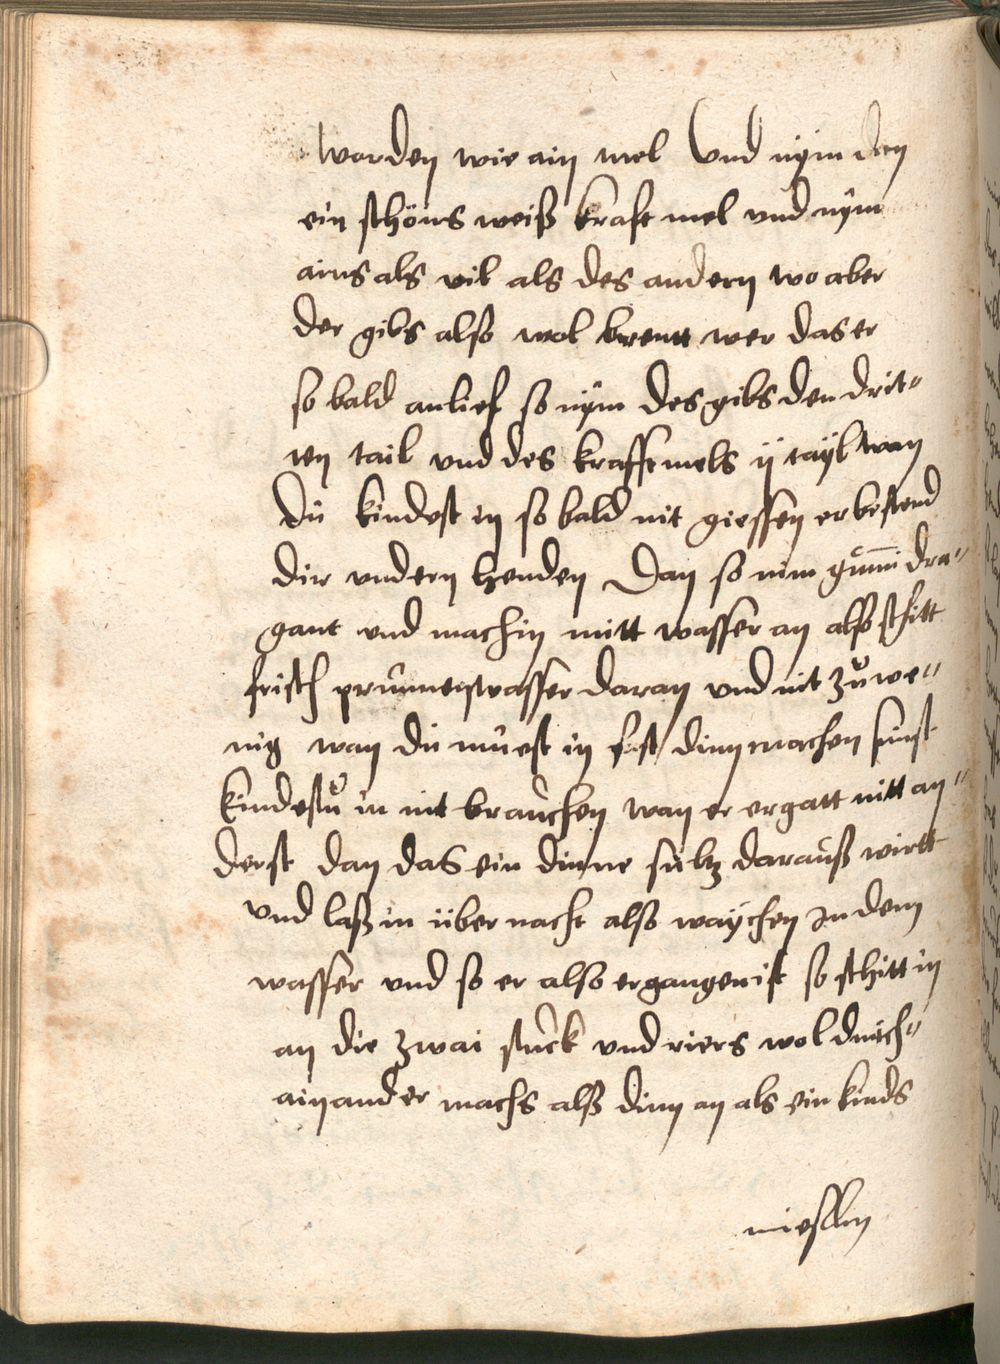 worden wie ain mel Vnd nÿm den
ein schöns weiß kraft mel vnd nÿm
ains als vil als des andern wo aber
der gibs also wol brentt wer das er
so bald anlief so nÿm des gibs den drit-
ten tail vnd des kraftmels ij taÿl wan
dü kindest in so bald nit giessen er bestend
dir vndern henden Dan so nim gummi dra-
gant vnd mach in mitt wasser an also schitt
frisch prunnenwasser daran vnd nit zů we-
nig wan du muest in fast dinn machen sunst
kindestů in nit brauchen wan er ergatt nitt an-
derst dan das ein dinne sultz darauß wirtt
vnd laß in über nacht also waÿchen In dem
wasser vnd so er also ergangen ist so schitt in
an die zwai stuck vnd riers wol durch-
ainander machs alß dinn an als ein kinds
mieslin